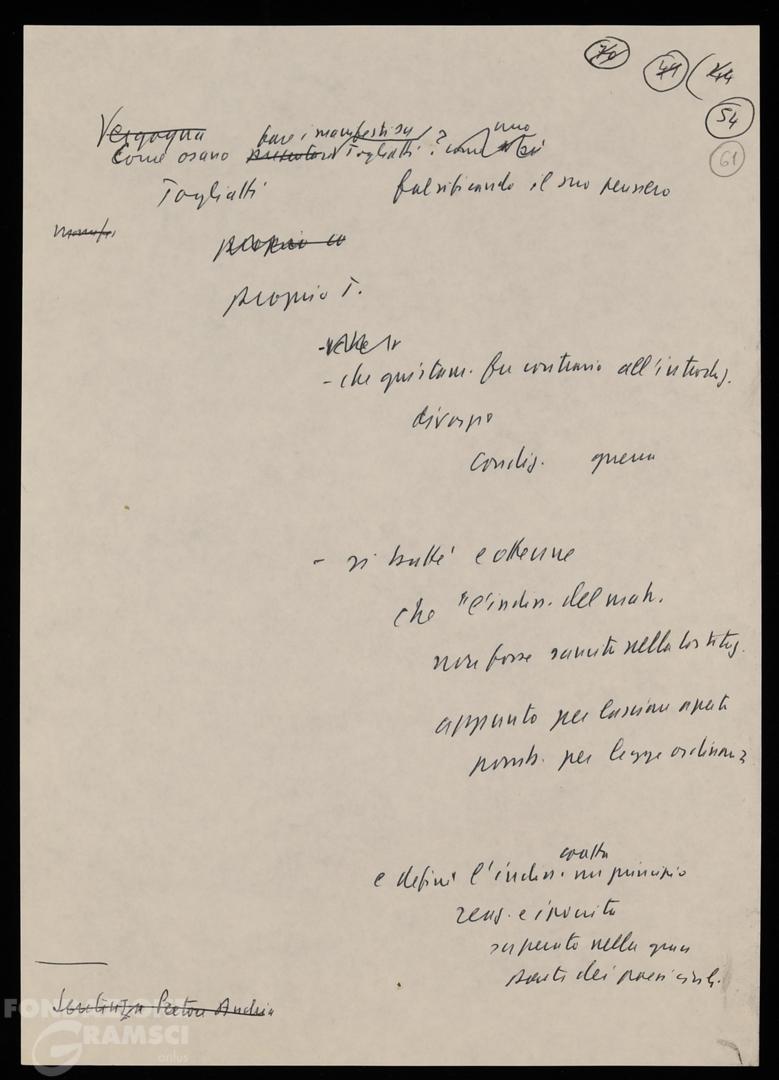 70
41
44
54
61
Vergogna fare i manifesti su uno
Come osano Togliatti? come
Togliatti falsificando il suo pensiero
manif.
proprio co
proprio T.
- che giustam. fu contrario all'introduz.
divorzio
condiz. guerra
- si batté e ottenne
che "l'indiss. del matr.
non fosse sancita nella Costituz.
appunto per lasciare aperta
possib. per legge ordinaria
e definì l'indiss. un principio
reaz. e ipocrita
superato nella gran
parte dei paesi civili.
Sentenza Pretore Andria
FONDAZIONE
GRAMSCI
onlus